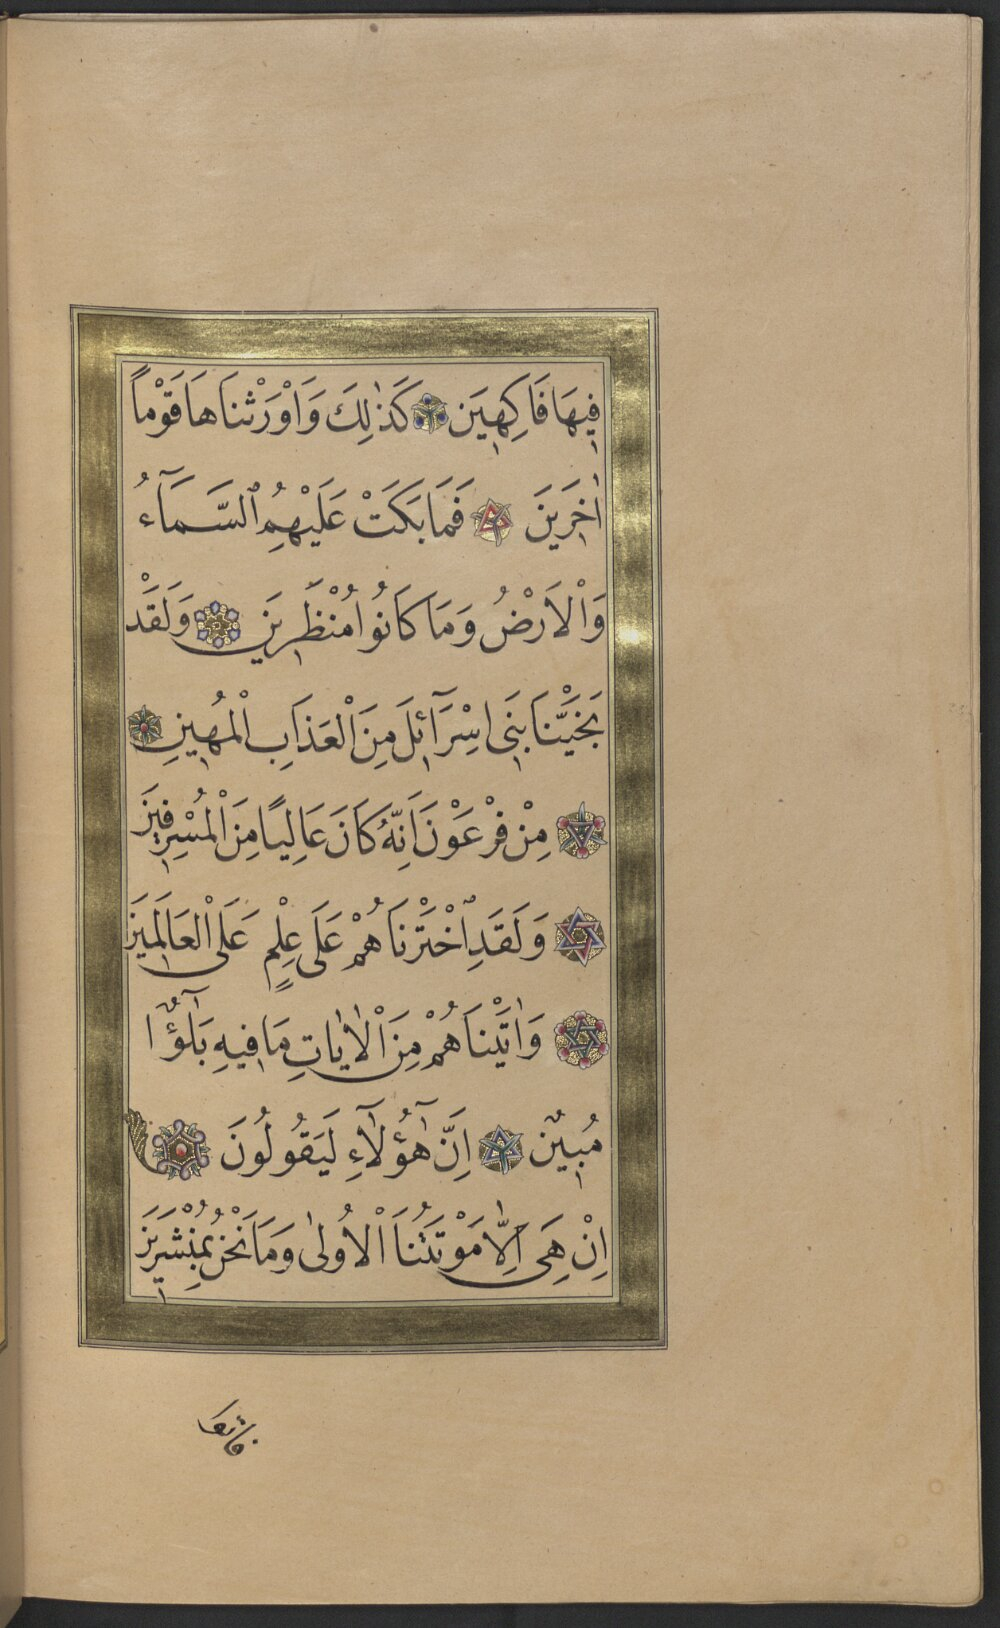 فِيهَا فَاكِهِينَ كَذٰلِكَ وَاَوْرَثْنَاهَا قَوْمًا
اٰخَرِينَ فَمَا بَكَتْ عَلَيْهِمُ ٱلسَّمَآءُ
وَالْاَرْضُ وَمَا كَانُوا مُنْظَرِينَ وَلَقَدْ
نَجَّيْنَا بَنِى اِسْرَآئِلَ مِنَ الْعَذَابِ الْمُهِينِ
مِنْ فِرْعَوْنَ اِنَّهُ كَانَ عَالِيًا مِنَ الْمُسْرِفِينَ
وَلَقَدِ ٱخْتَرْنَاهُمْ عَلَى عِلْمٍ عَلَى الْعَالَمِينَ
وَاٰتَيْنَاهُمْ مِنَ الْاٰيَاتِ مَا فِيهِ بَلٰٓؤٌا
مُبِينٌ اِنَّ هٰٓؤُلَآءِ لَيَقُولُونَ
اِنْ هِىَ اِلَّا مَوْتَتُنَا الْاُولٰى وَمَا نَحْنُ بِمُنْشَرِينَ
فأتوا